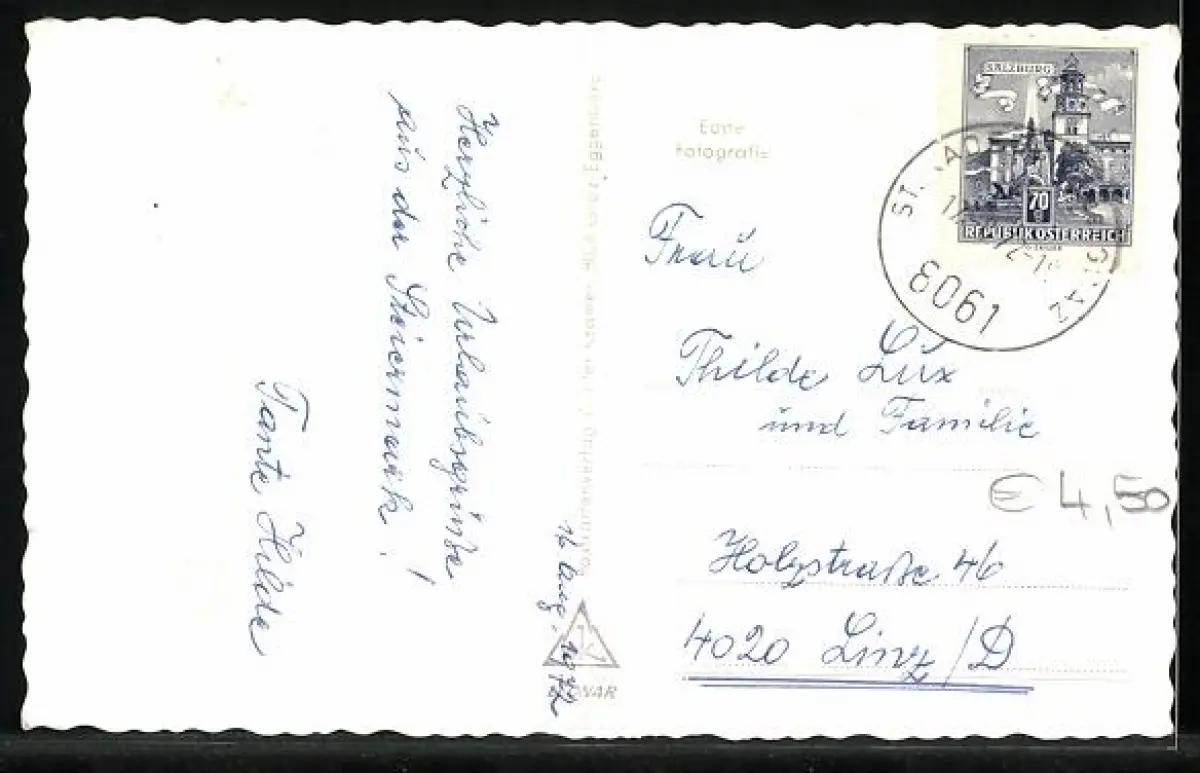 Herzliche Urlaubsgrüße
aus der Steiermark!
Tante Hilde
Aug. 1972
Echte
Fotografie
Frau
Thilde Lux
und Familie
Holzstraße 46
4020 Linz/D
€ 4,50
SALZBURG
70
REPUBLIK ÖSTERREICH
ST.
8061